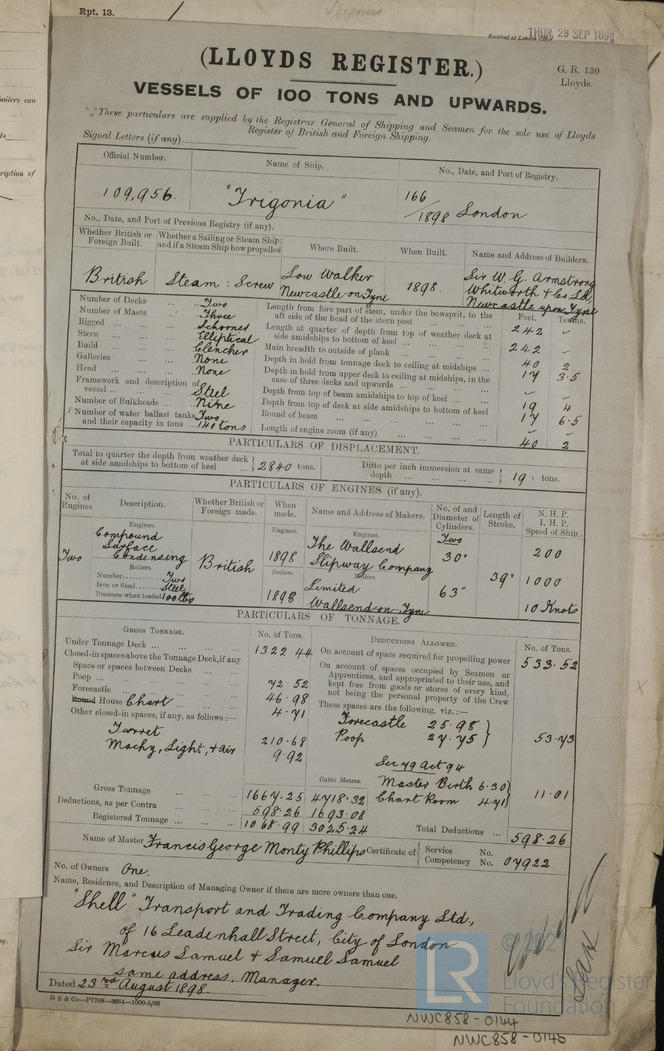 Rpt. 13.
Received at London Office
THUR. 29 SEP 1898
(LLOYDS REGISTER.)
G. R. 130
Lloyds.
VESSELS OF 100 TONS AND UPWARDS.
These particulars are supplied by the Registrar General of Shipping and Seamen for the sole use of Lloyds
Register of British and Foreign Shipping.
Signal Letters (if any)
Official Number. Name of Ship. No., Date, and Port of Registry.
109,956. "Trigonia" 166/1898 London
No., Date, and Port of Previous Registry (if any).
Whether British or Foreign Built. Whether a Sailing or Steam Ship; and if a Steam Ship how propelled Where Built. When Built. Name and Address of Builders.
British Steam : Screw Low Walker Newcastle-on-Tyne 1898. Sir W. G. Armstrong Whitworth & Co. Ld, Newcastle upon Tyne
Feet. Tenths.
Number of Decks ... Two
Number of Masts ... Three
Rigged ... Schooner
Stern ... Elliptical
Build ... Clencher
Galleries ... None
Head ... None
Framework and description of vessel ... Steel
Number of Bulkheads ... Nine
Number of water ballast tanks, and their capacity in tons ... Two 140 tons
Length from fore part of stem, under the bowsprit, to the aft side of the head of the stern post ... 242 -
Length at quarter of depth from top of weather deck at side amidships to bottom of keel ... 242 -
Main breadth to outside of plank ... 40 2
Depth in hold from tonnage deck to ceiling at midships ... 17 3.5
Depth in hold from upper deck to ceiling at midships, in the case of three decks and upwards ... - -
Depth from top of beam amidships to top of keel ... 19 4
Depth from top of deck at side amidships to bottom of keel 17 6.5
Round of beam ... - -
Length of engine room (if any) ... 40 2
PARTICULARS OF DISPLACEMENT.
Total to quarter the depth from weather deck at side amidships to bottom of keel ... 2840 tons. Ditto per inch immersion at same depth ... 19 . tons.
PARTICULARS OF ENGINES (if any).
No. of Engines Description. Whether British or Foreign made. When made. Name and Address of Makers. No. of and Diameter of Cylinders. Length of Stroke. N. H. P. I. H. P. Speed of Ship.
Engines. Engines. Engines. Two
Compound Surface Condensing 1898 The Wallsend Slipway Company 30" 200
Two British 39" 1000
Boilers. Boilers. Boilers.
Number Two
Iron or Steel Steel
Pressure when loaded 100 lbs
1898 Limited Wallsend-on-Tyne 63" 10 Knots
PARTICULARS OF TONNAGE.
GROSS TONNAGE. No. of Tons.
Under Tonnage Deck ... 1322.44
Closed-in spaces above the Tonnage Deck, if any
Space or spaces between Decks
Poop ... 72.52
Forecastle ... 46.98
Round House Chart 4.71
Other closed-in spaces, if any, as follows :—
Turret 210.68
Machy, Light, & Air 9.92
Cubic Metres.
Gross Tonnage ... 1667.25 4718.32
Deductions, as per Contra ... 598.26 1693.08
Registered Tonnage ... 1068.99 3025.24
DEDUCTIONS ALLOWED. No. of Tons.
On account of space required for propelling power 533.52
On account of spaces occupied by Seamen or Apprentices, and appropriated to their use, and kept free from goods or stores of every kind, not being the personal property of the Crew
These spaces are the following, viz. :—
Forecastle 25.98
Poop 27.75 } 53.73
Sec 79 Act 94
Master Birth 6.30
Chart Room 4.71 } 11.01
Total Deductions ... 598.26
Name of Master Francis George Monty Phillips Certificate of { Service No. Competency No. 07922
No. of Owners One.
Name, Residence, and Description of Managing Owner if there are more owners than one.
"Shell" Transport and Trading Company Ltd.,
of 16 Leadenhall Street, City of London
Sir Marcus Samuel & Samuel Samuel
same address, Manager.
Dated 23rd August 1898
B S & Co—P7708—3664—1000-5/98
Lloyd's Register
Foundation
LR
NWC858-0144
NWC858-0145